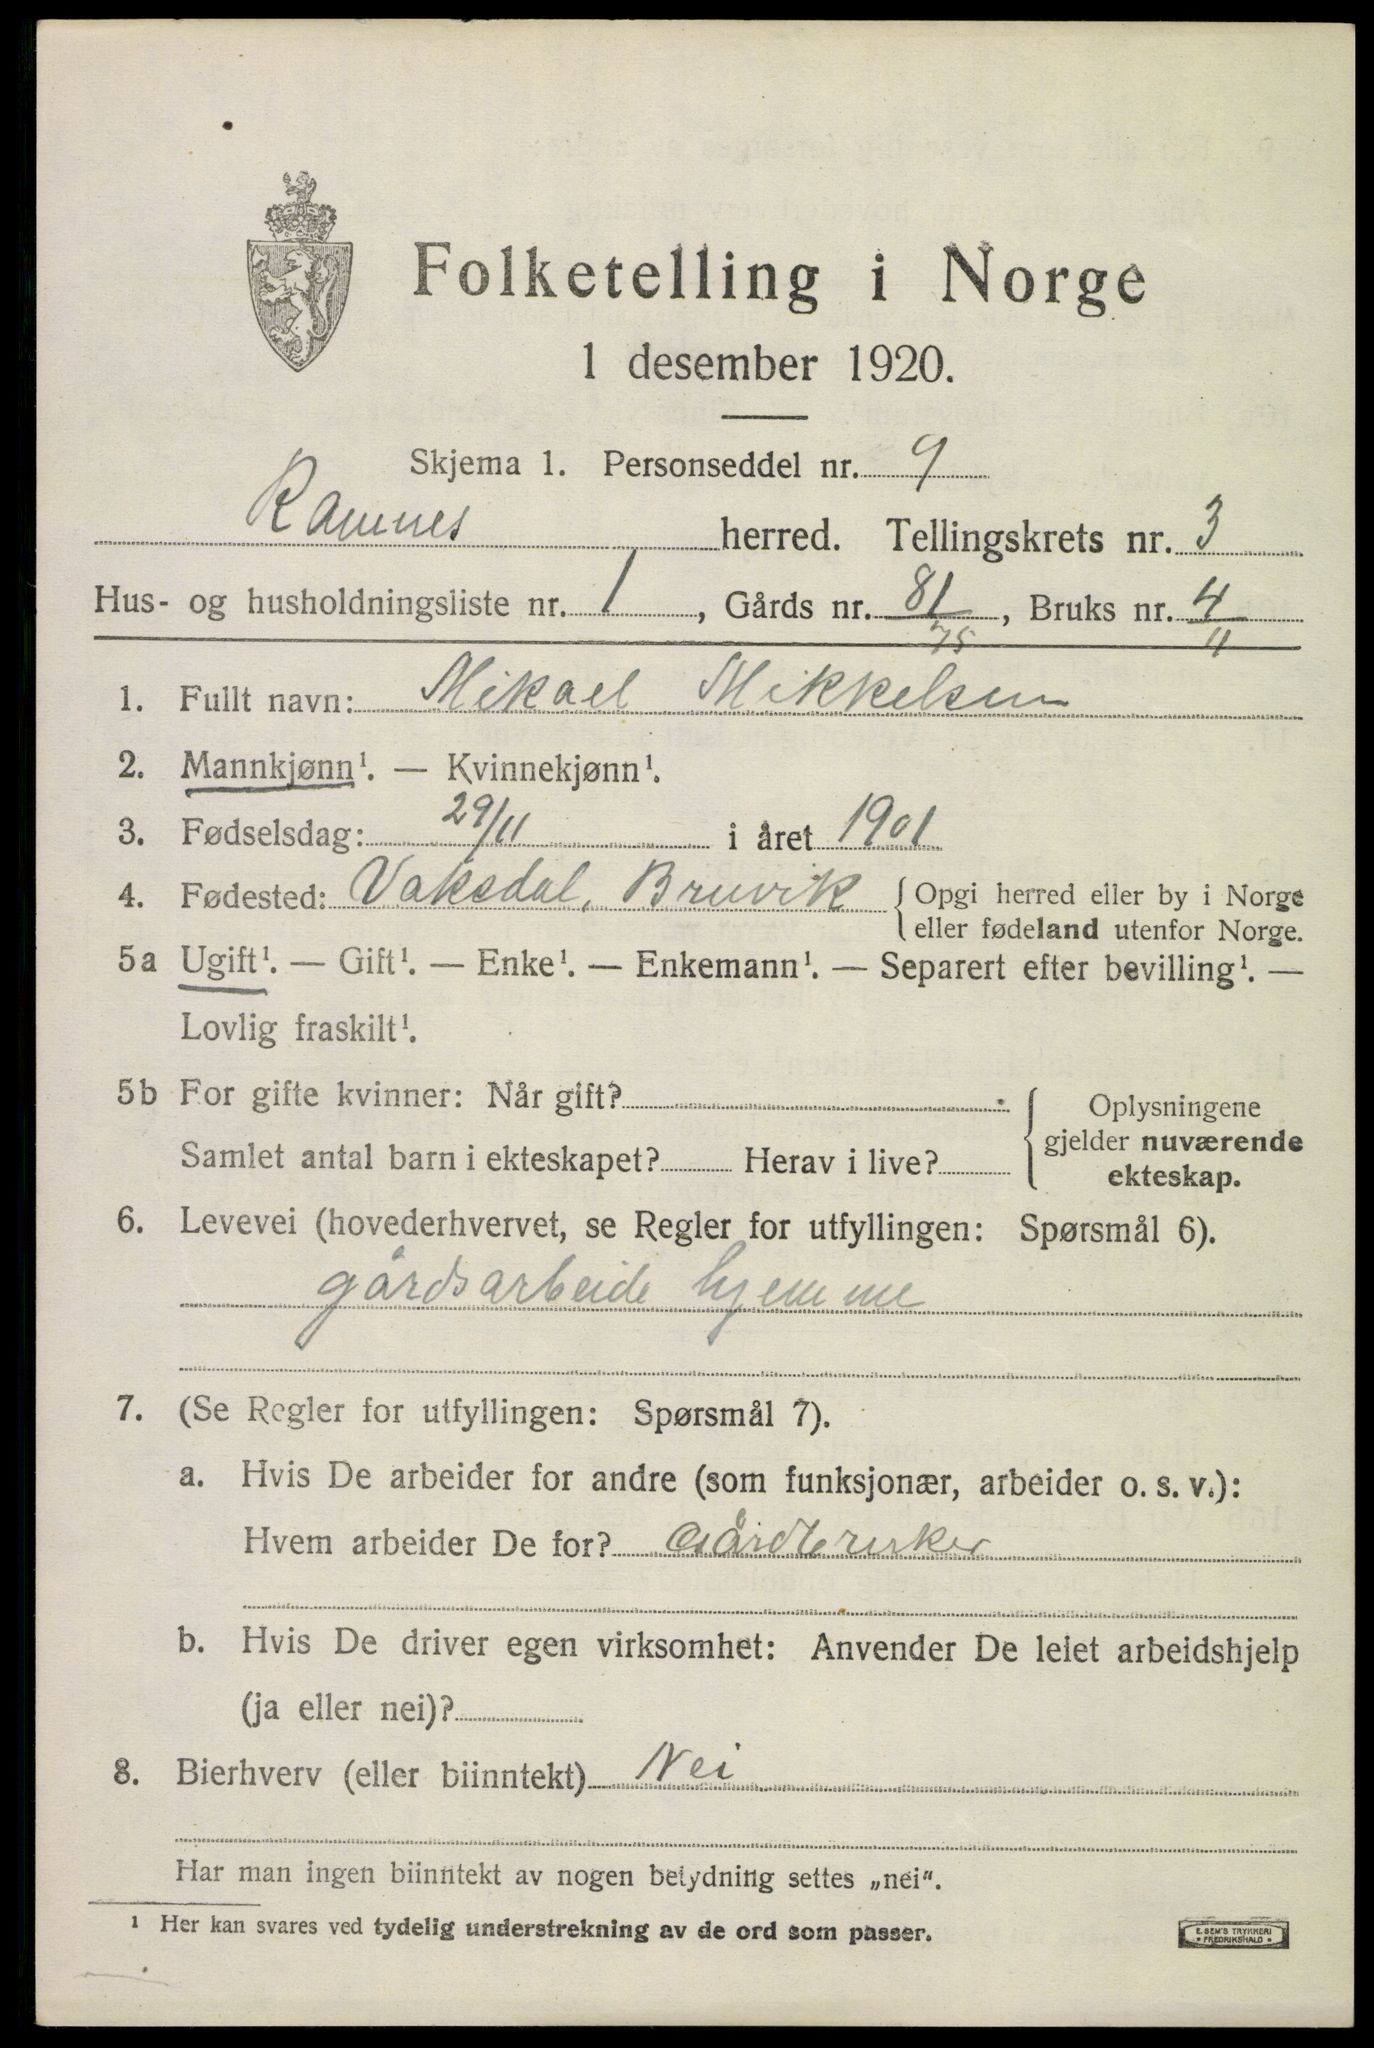 Folketelling i Norge
1 desember 1920.
Skjema 1. Personseddel nr. 9
Ramnes herred. Tellingskrets nr. 3
Hus- og husholdningsliste nr. 1, Gårds nr. 81/75, Bruks nr. 4/11
1. Fullt navn: Mikael Mikkelsen
2. Mannkjønn¹. — Kvinnekjønn¹.
3. Fødselsdag: 29/11 i året 1901
4. Fødested: Vaksdal, Bruvik { Opgi herred eller by i Norge
eller fødeland utenfor Norge.
5a Ugift¹. — Gift¹. — Enke¹. — Enkemann¹. — Separert efter bevilling¹. —
Lovlig fraskilt¹.
5b For gifte kvinner: Når gift?
Samlet antal barn i ekteskapet? Herav i live?
Oplysningene
gjelder nuværende
ekteskap.
6. Levevei (hovederhvervet, se Regler for utfyllingen: Spørsmål 6).
gårdsarbeide hjemme
7. (Se Regler for utfyllingen: Spørsmål 7).
a. Hvis De arbeider for andre (som funksjonær, arbeider o. s. v.):
Hvem arbeider De for? Gårdbruker
b. Hvis De driver egen virksomhet: Anvender De leiet arbeidshjelp
(ja eller nei)?
8. Bierhverv (eller biinntekt) Nei
Har man ingen biinntekt av nogen betydning settes „nei".
¹ Her kan svares ved tydelig understrekning av de ord som passer.
E. SEM'S TRYKKERI
FREDRIKSHALD